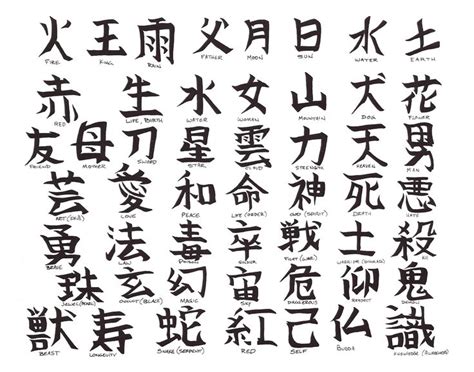 火 王 雨 父 月 日 水 土
FIRE KING RAIN FATHER MOON SUN WATER EARTH
赤 生 水 女 山 犬 花
RED LIFE, BIRTH WATER WOMAN MOUNTAIN DOG FLOWER
友 母 刀 星 雲 力 天 男
FRIEND MOTHER SWORD STAR CLOUD STRENGTH HEAVEN MAN
芸 愛 和 命 神 死 悪
LOVE PEACE LIFE GOD (SPIRIT) DEATH HATE
勇 法 毒 卒 戦 士 殺
BRAVE LAW POISON FIGHT (WAR) KILL
珠 玄 幻 宙 危 仰 鬼
JEWEL (PEARL) OCCULT (BLACK) MAGIC SKY DANGEROUS RESPECT DEMON
獣 寿 蛇 紅 己 仏 識
BEAST LONGEVITY SNAKE (SERPENT) RED SELF BUDDA